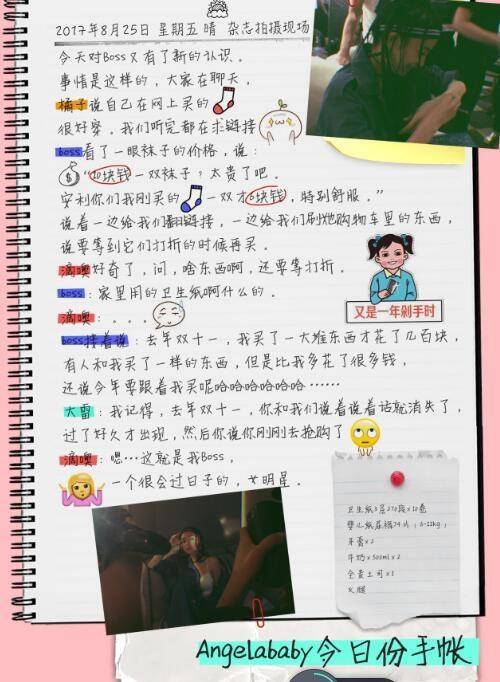 2017年8月25日 星期五 晴 杂志拍摄现场
今天对Boss又有了新的认识。
事情是这样的,大家在聊天,
橘子说自己在网上买的
很好穿。我们听完都在求链接
boss看了一眼袜子的价格,说:
“10块钱一双袜子?太贵了吧。
安利你们我刚买的 一双才6块钱,特别舒服。”
说着一边给我们翻链接,一边给我们刷她购物车里的东西,
说要等到它们打折的时候再买。
滴噢好奇了,问,啥东西啊,还要等打折。
boss:家里用的卫生纸啊什么的。
滴噢:。。。。
又是一年剁手时
boss接着说:去年双十一,我买了一大堆东西才花了几百块,
有人和我买了一样的东西,但是比我多花了很多钱,
还说今年要跟着我买呢哈哈哈哈哈哈……
大雷:我记得,去年双十一,你和我们说着说着话就消失了,
过了好久才出现,然后你说你刚刚去抢购了
滴噢:嗯…这就是我Boss,
一个很会过日子的,女明星。
卫生纸3层270段x10卷
婴儿纸尿裤74片(6-11kg)
牙膏x2
牛奶x500mlx2
全麦土司x1
火腿
Angelababy今日份手帐